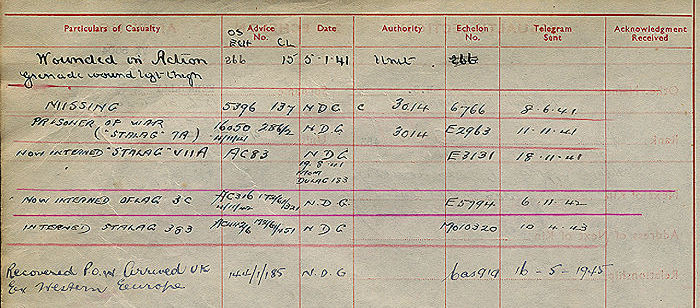 Particulars of Casualty Advice No. Date Authority Echelon No. Telegram Sent Acknowledgment Received
OS CL
Wounded in Action 266 15 5.1.41 Unit 266
Grenade wound thigh
MISSING 5396 137 N D G C 3014 6766 8.6.41
PRISONER OF WAR
("STALAG" 7A) 16050 286/2 N D G 3014 E2963 11.11.41
4/11/41
NOW INTERNED "STALAG" VIIA AC83 N D G E3131 18.11.41
19.8.41
FROM
DULAG 183
NOW INTERNED OFLAG 3C AC316 N.D.G E5794 6.11.42
4/11/42
INTERNED STALAG 383 N D G M010320 10.4.43
Recovered P.O.W Arrived UK 144/1/185 N.D.G 6as919 16-5-1945
Ex Western Europe